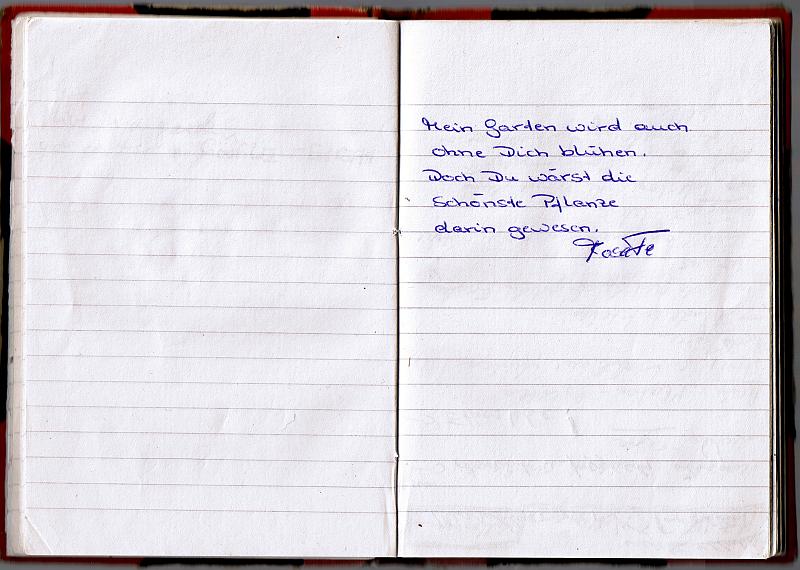 Mein Garten wird auch
ohne Dich blühen.
Doch Du wärst die
schönste Pflanze
darin gewesen.